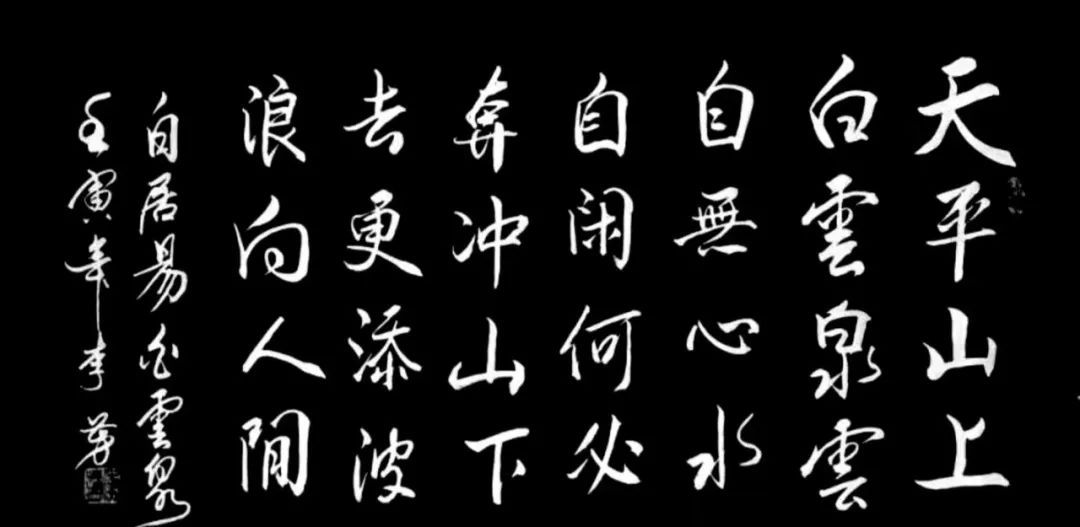 天平山上
白雲泉雲
自無心水
自闲何必
奔冲山下
去更添波
浪向人間
白居易白雲泉
壬寅年李芳